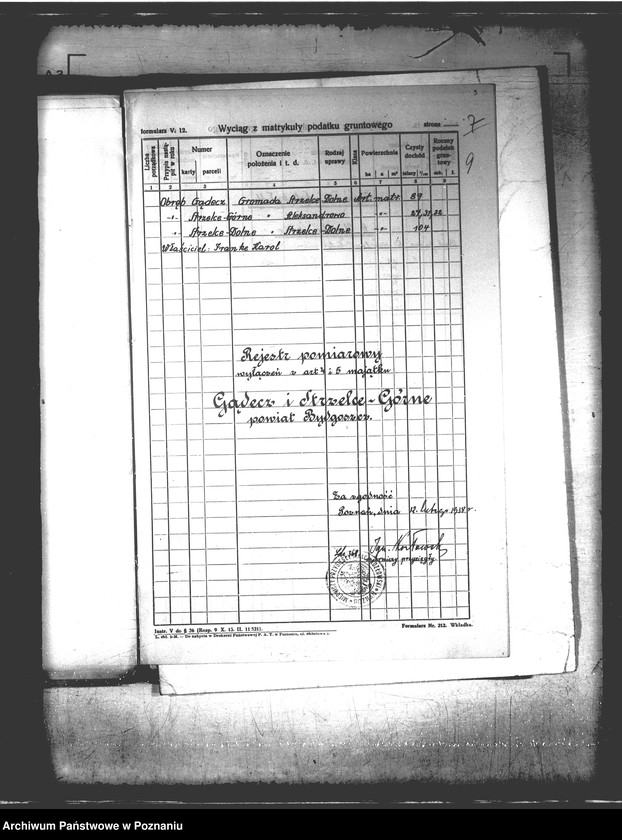 5
formularz V: 12.
Wyciąg z matrykuły podatku gruntowego
strona
7
9
Liczba porządkowa
Przypis nastąpił w roku
Numer
karty
parceli
Oznaczenie położenia i t. d.
Rodzaj uprawy
Klasa
Powierzchnia
ha a m²
Czysty dochód
talary
Roczny podatek gruntowy
1 2 3 4 5 6 7 8 9
Obręb Gądecz Gromada Strzelce Dolne Art. matr. 89
-„- Strzelce-Górne „ Aleksandrowo -„- 27, 31, 32
-„- Strzelce-Dolne „ Strzelce-Dolne -„- 104
Właściciel: Franke Karol
Rejestr pomiarowy
wyłączeń z art 4 i 5 majątku
Gądecz i Strzelce-Górne
powiat Bydgoszcz.
Za zgodność
Poznań, dnia 12. lutego 193 r.
mierniczy przysięgły
Instr. V do § 26 (Rozp. 9 X. 13. II. 11521).
Formularz Nr. 212. Wkładka.
Archiwum Państwowe w Poznaniu